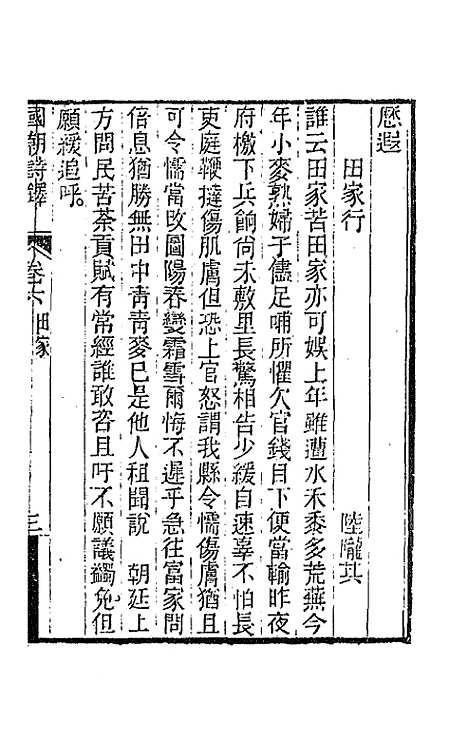 懕遐
田家行　陸隴其
誰云田家苦田家亦可娱上年雖遭水禾黍多荒蕪今
年小麥熟婦子儘足哺所懼欠官錢目下便當輸昨夜
府檄下兵餉尚未敷里長驚相告少緩自速辜不怕長
吏庭鞭撻傷肌膚但恐上官怒謂我縣令懦傷膚猶且
可令懦當改圖陽春變霜雪爾悔不遲乎急往富家問
倍息猶勝無田中青青麥已是他人租聞說　朝廷上
方問民苦荼貢賦有常經誰敢咨且吁不願議蠲免但
願緩追呼。
國朝詩鐸　卷六　田家　三